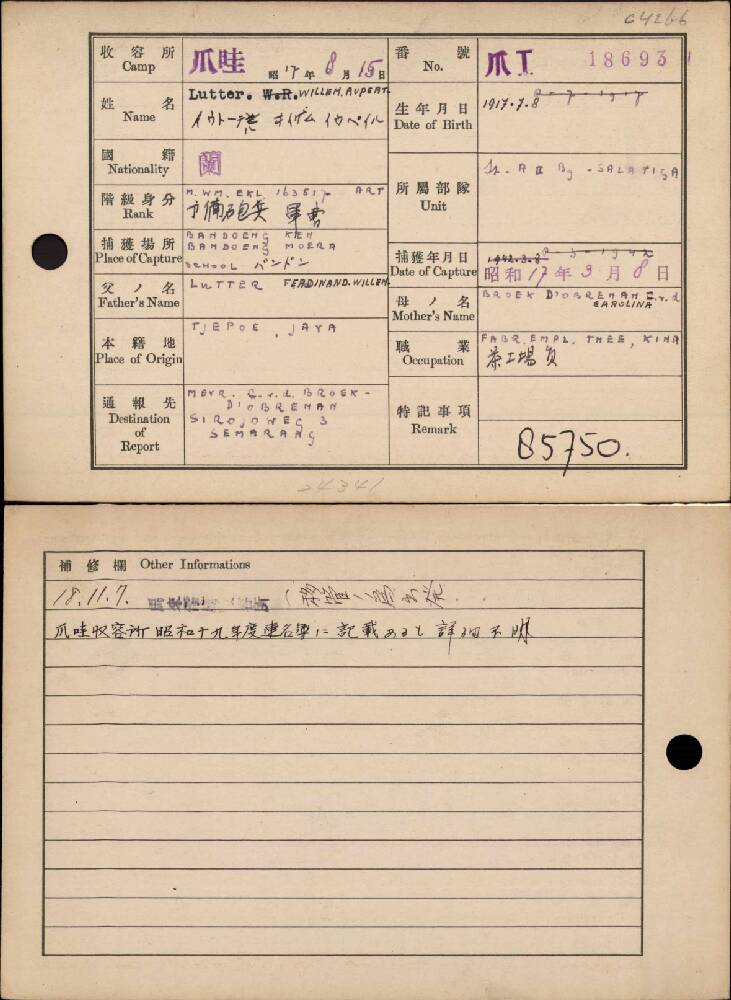 C4266
收容所 Camp
爪哇 昭17年8月15日
番號 No.
爪I 18693
姓名 Name
Lutter. W.R. WILLEM. RUPERT.
生年月日 Date of Birth
1917.7.8 8-7-1917
國籍 Nationality
蘭
階級身分 Rank
M. WM. EKL 163817 ART
砲兵 軍曹
所屬部隊 Unit
A II Bg - SALATIGA
捕獲場所 Place of Capture
BANDOENG KEN
BANDOENG MOERA
SCHOOL バンドン
捕獲年月日 Date of Capture
1942.3.8 8-3-1942
昭和17年3月8日
父ノ名 Father's Name
LUTTER FERDINAND. WILLEM.
母ノ名 Mother's Name
BROEK D'OBREMAN C.v.d.
CAROLINA
本籍地 Place of Origin
TJEPOE, JAVA
職業 Occupation
FABR. EMPL. THEE, KINA
茶工場員
通報先 Destination of Report
MEVR. C.v.d. BROEK-
D'OBREMAN
SIRODJOWEG 3
SEMARANG
特記事項 Remark
85750.
24341
補修欄 Other Informations
18.11.7. 移管ノ為出発
爪哇收容所昭和十九年度連名簿に記載あると詳細不明